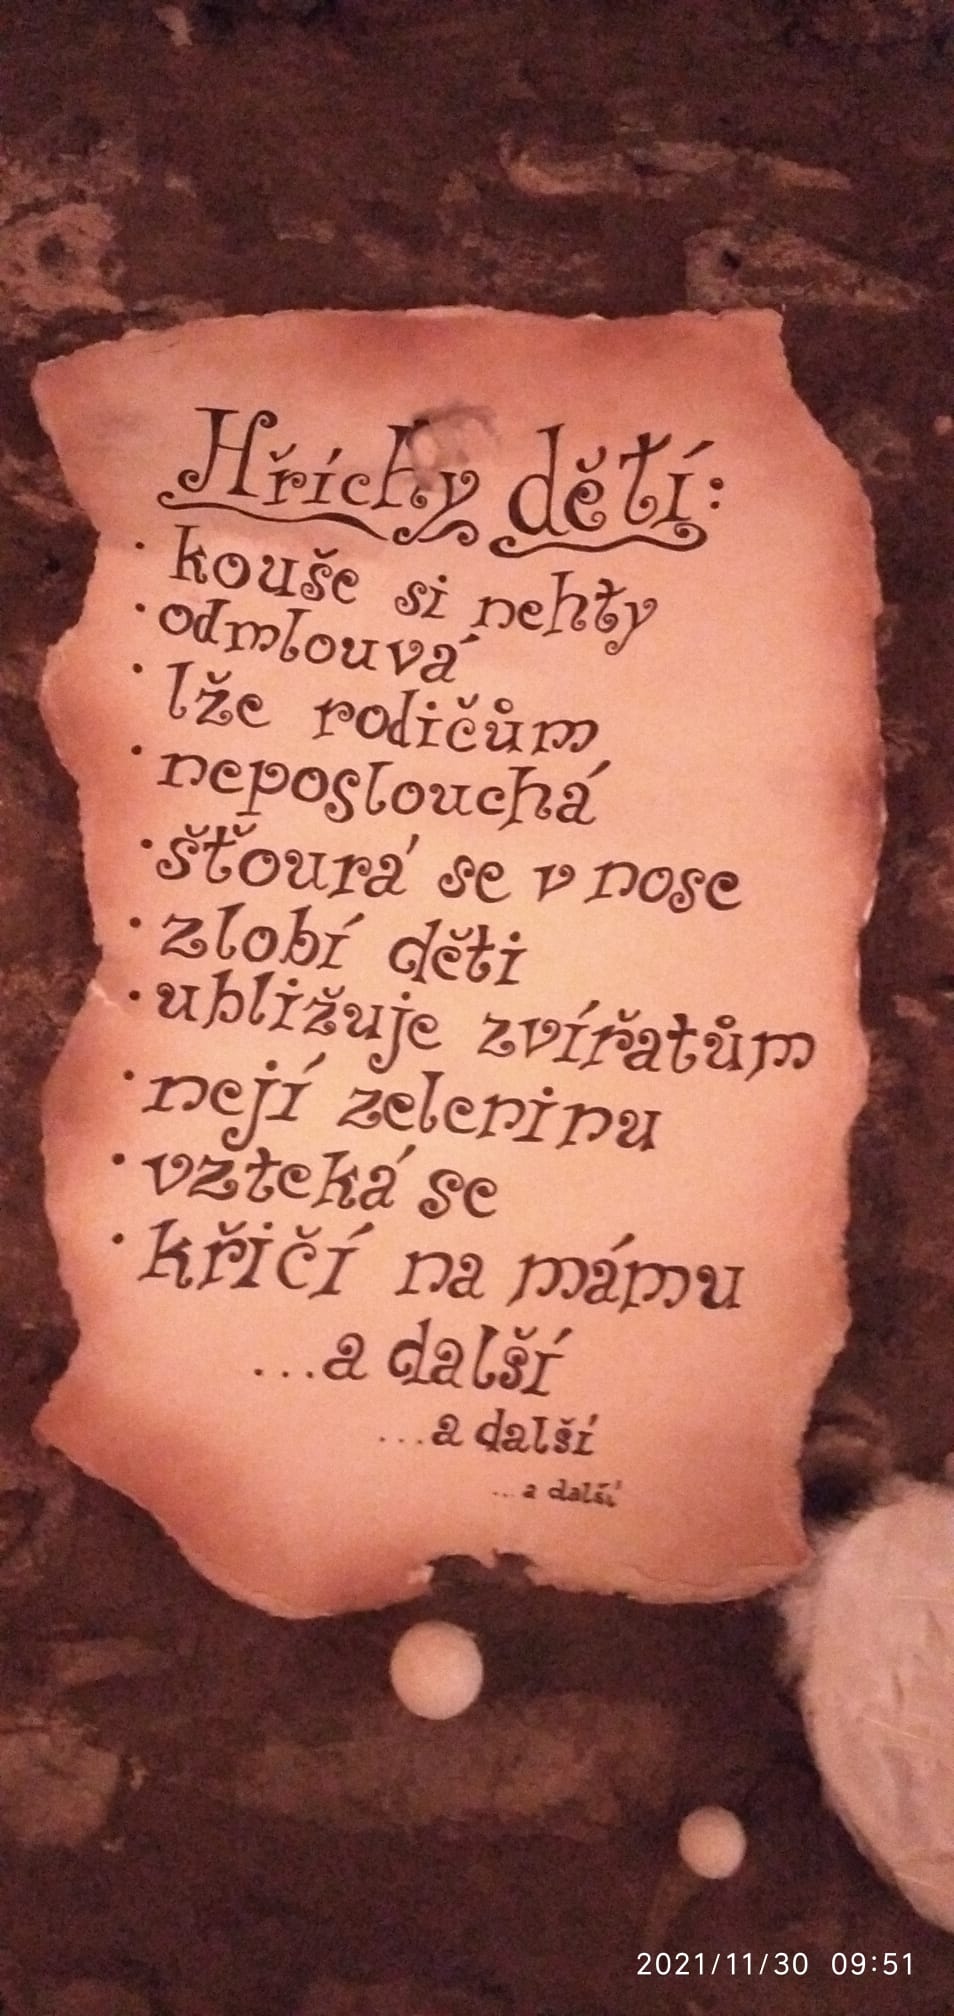 Hříchy dětí:
· kouše si nehty
· odmlouvá
· lže rodičům
· neposlouchá
· šťourá se v nose
· zlobí děti
· ubližuje zvířatům
· nejí zeleninu
· vzteká se
· křičí na mámu
...a další
...a další
...a další
2021/11/30 09:51